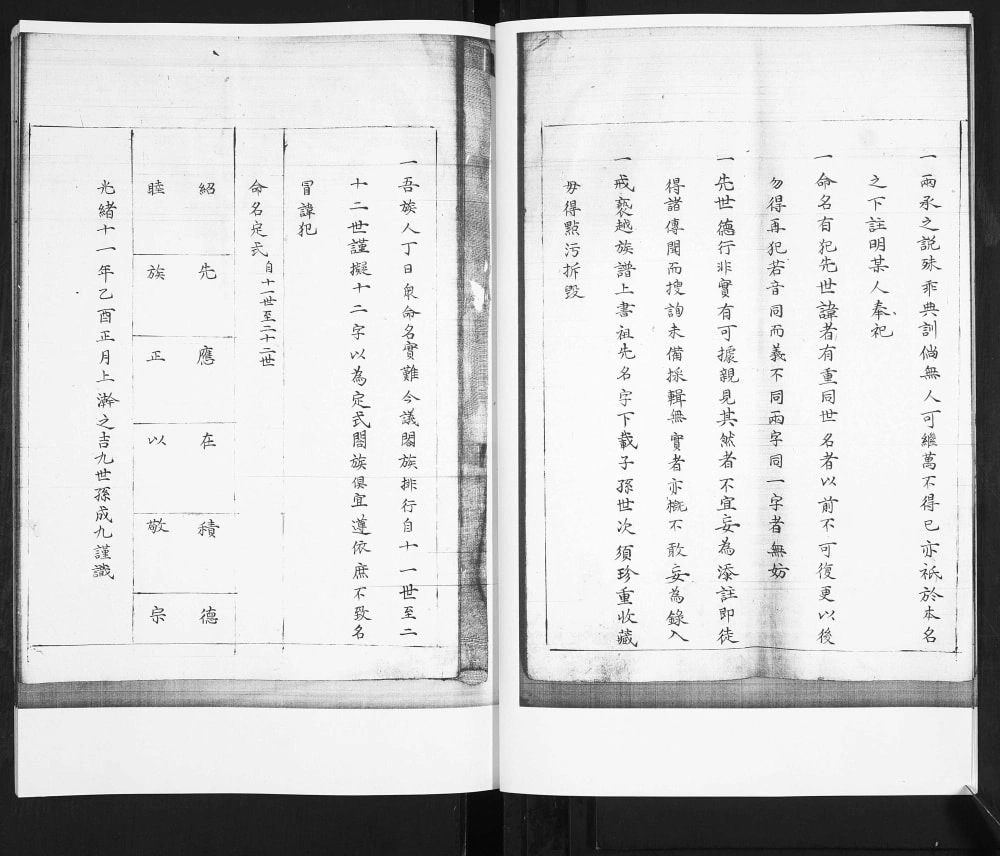 一兩承之説殊非典訓倘無人可繼萬不得已亦祇於本名
之下註明某人奉祀
一命名有犯先世諱者有重同世名者以前不可復更以後
勿得再犯若音同而義不同兩字同一字者無妨
一先世德行非實有可據親見其然者不宜妄為添註即徒
得諸傳聞而搜詢未備採輯無實者亦概不敢妄為錄入
一戒褻越族譜上書祖先名字下載子孫世次須珍重收藏
毋得㸃污拆毀
一吾族人丁日衆命名實難今議閤族排行自十一世至二
十二世謹擬十二字以為定式閤族俱宜遵依庶不致名
冒諱犯
命名定式 自十一世至二十二世
紹先應在積德
睦族正以敬宗
光緒十一年乙酉正月上澣之吉九世孫成九謹識